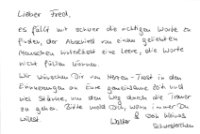 Lieber Fred,
es fällt mir schwer die richtigen Worte zu
finden, der Abschied von einem geliebten
Menschen hinterlässt eine Leere, die Worte
nicht füllen können.
Wir wünschen Dir von Herzen Trost in den
Erinnerungen an Eure gemeinsame Zeit und
viel Stärke, um den Weg durch die Trauer
zu gehen. Bitte melde Dich, wenn immer Du
willst. Walter & Das kleine
Schwesterchen